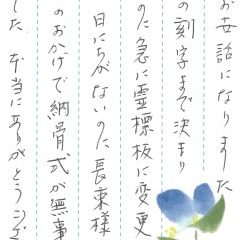 お世話になりまし
の刻字まで決まり
のに急に霊標板に変更
日にちがないのに長東様
のおかげで納骨式が無事
した 本当にありがとうござ